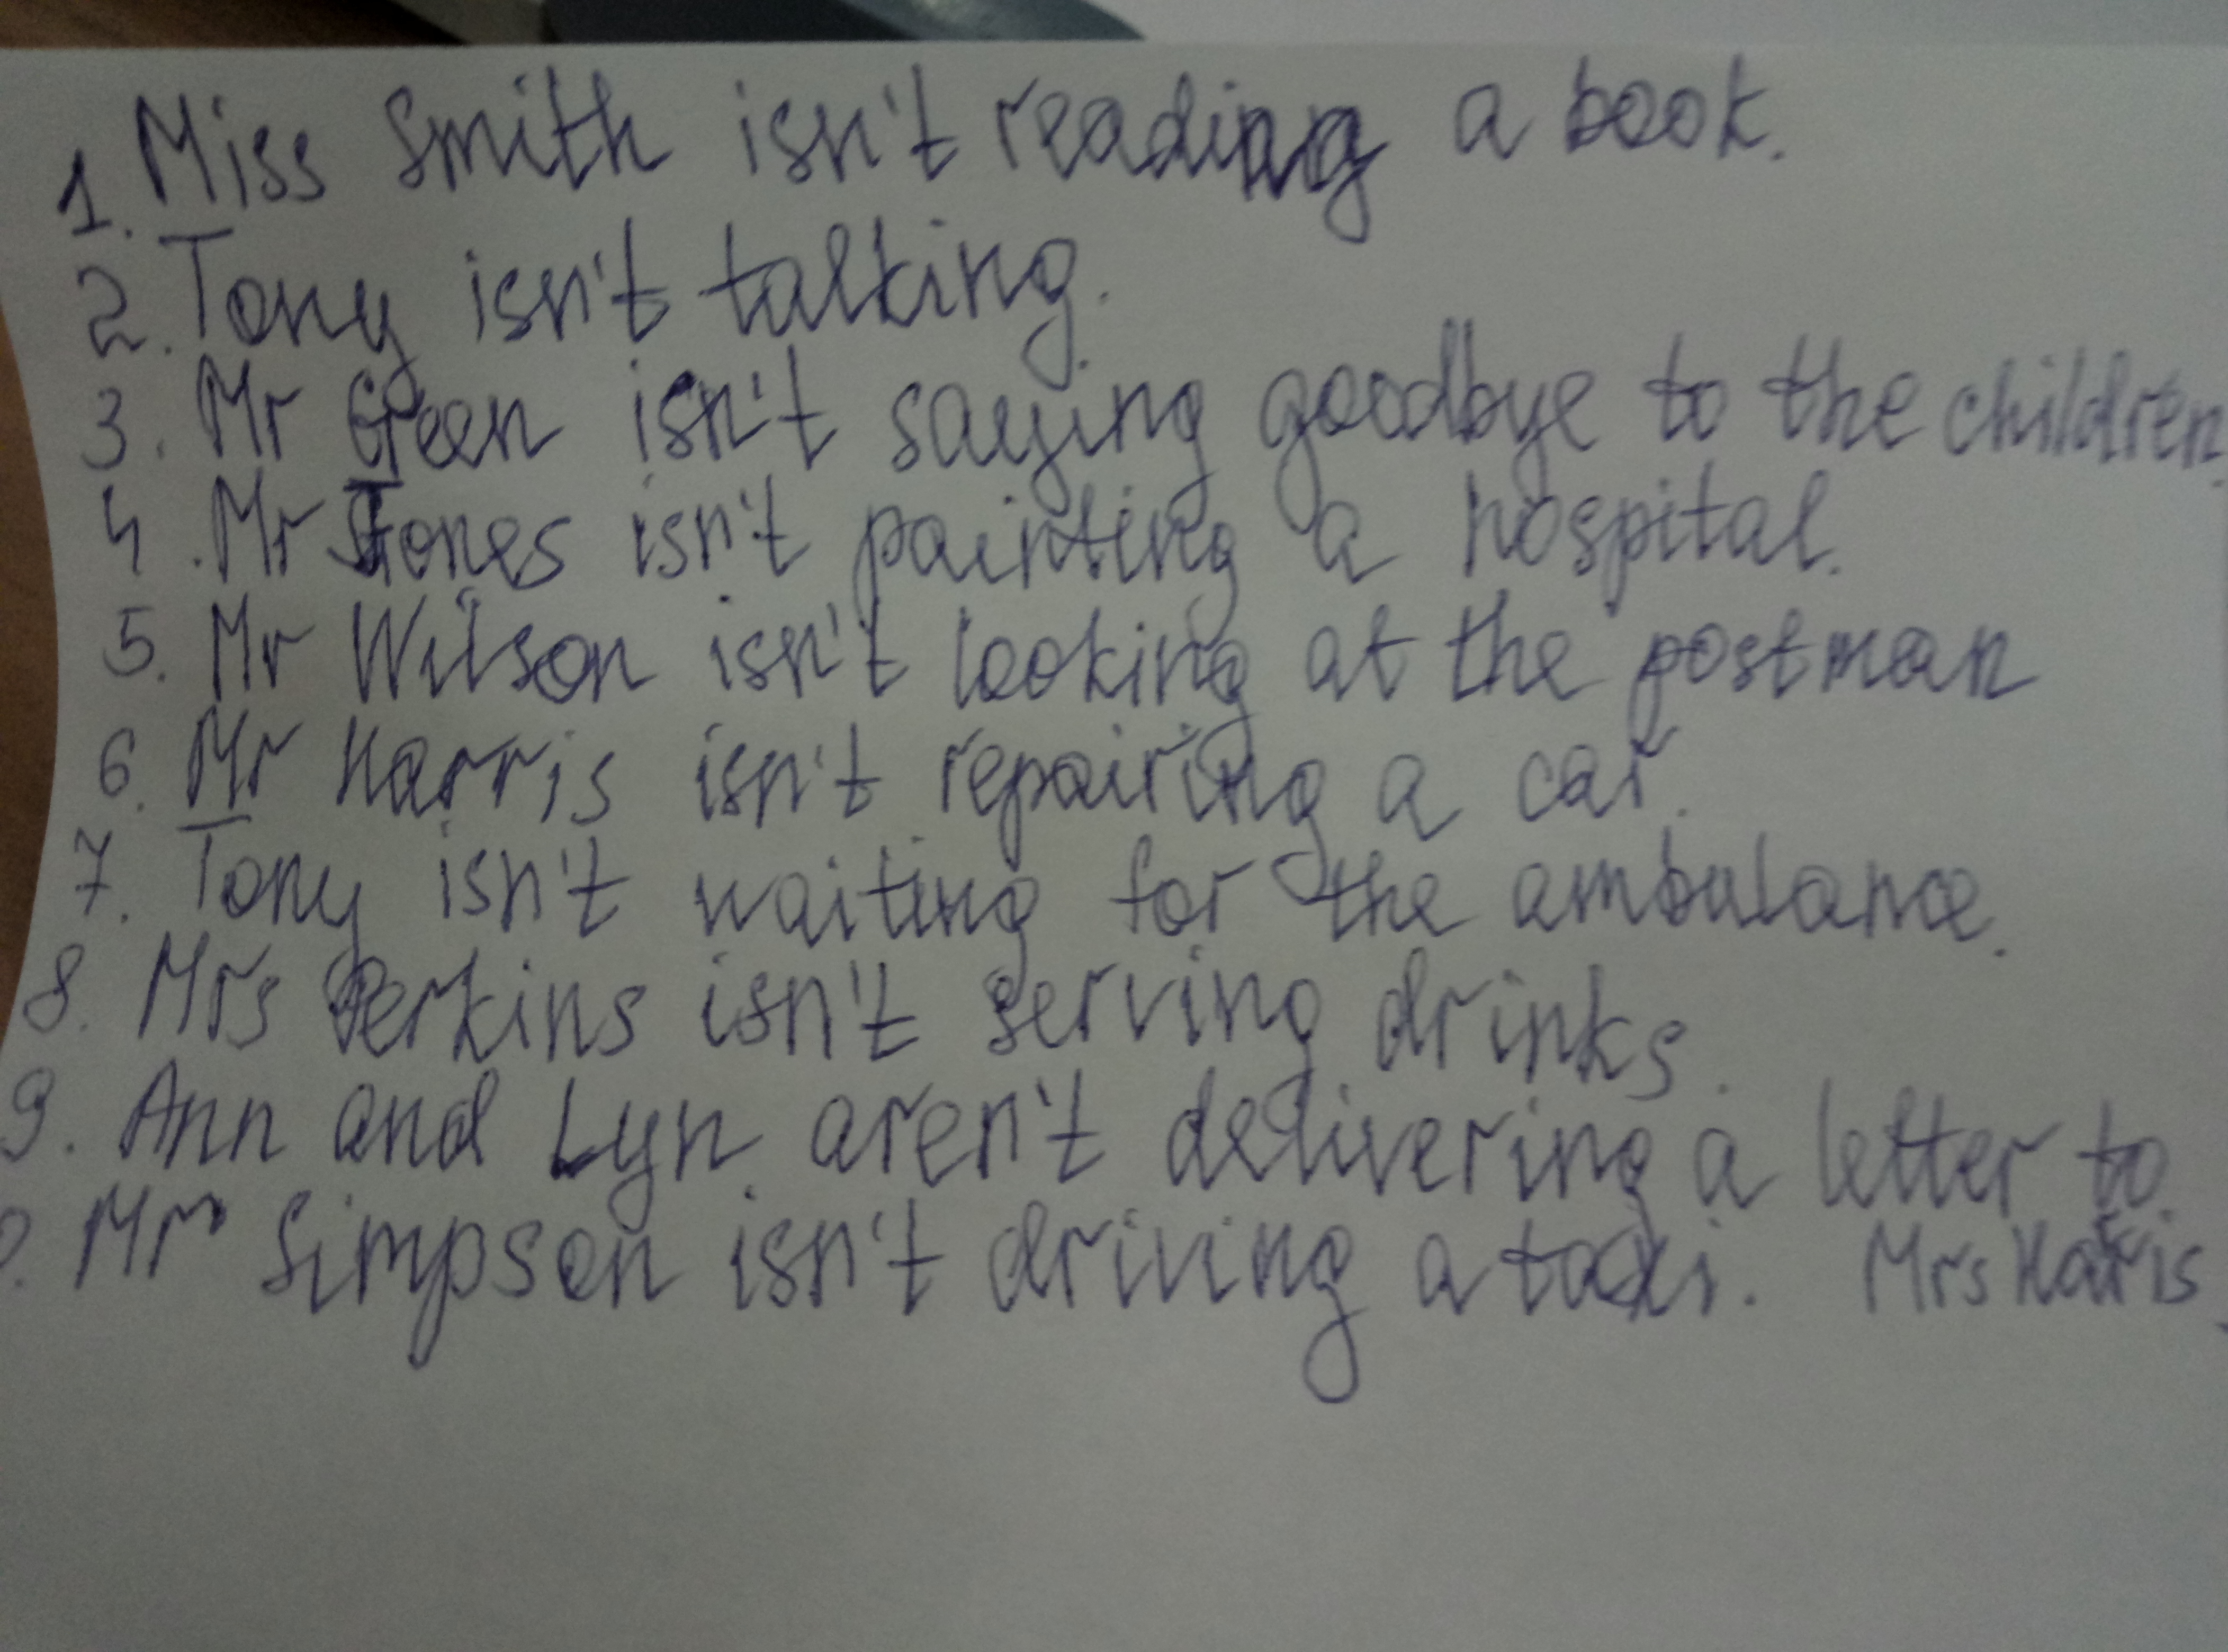 1. Miss Smith isn't reading a book.
2. Tony isn't talking.
3. Mr Green isn't saying goodbye to the children.
4. Mr isn't painting a hospital.
5. Mr Wilson isn't looking at the postman
6. Mr Harris isn't repairing a car.
7. Tony isn't waiting for the ambulance.
8. Mrs Perkins isn't serving drinks.
9. Ann and Lyn aren't delivering a letter to
0. Mr Simpson isn't driving a taxi. Mrs Harris.